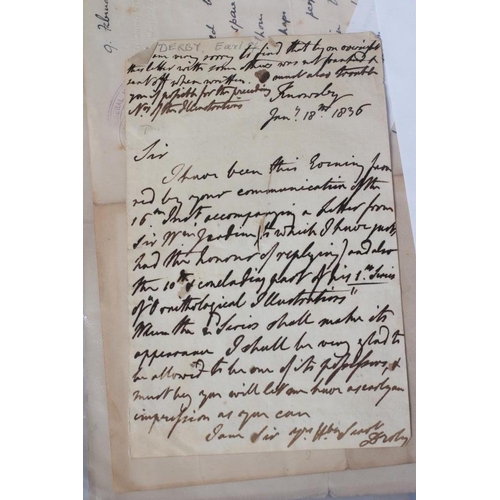 DERBY, Earl
am very sorry to find that by an oversight
this letter with some others was not franked &
sent off when written. I must also trouble
you if possible for the preceding
Nos. of the Illustrations
Knowsley
Jany. 18th 1836
Sir
I have been this Evening favor
red by your communication of the
16th Inst accompanying a Letter from
Sir Wm Jardine (to which I have just
had the honour of replying) and also
the 10th & concluding part of his 1st Series
of "Ornithological Illustrations"
When the 2d Series shall make its
appearance I shall be very glad to
be allowed to be one of its possessors, &
must beg you will let me have as early an
impression as you can
I am Sir yr. Hble Servt
Derby
9 Februa